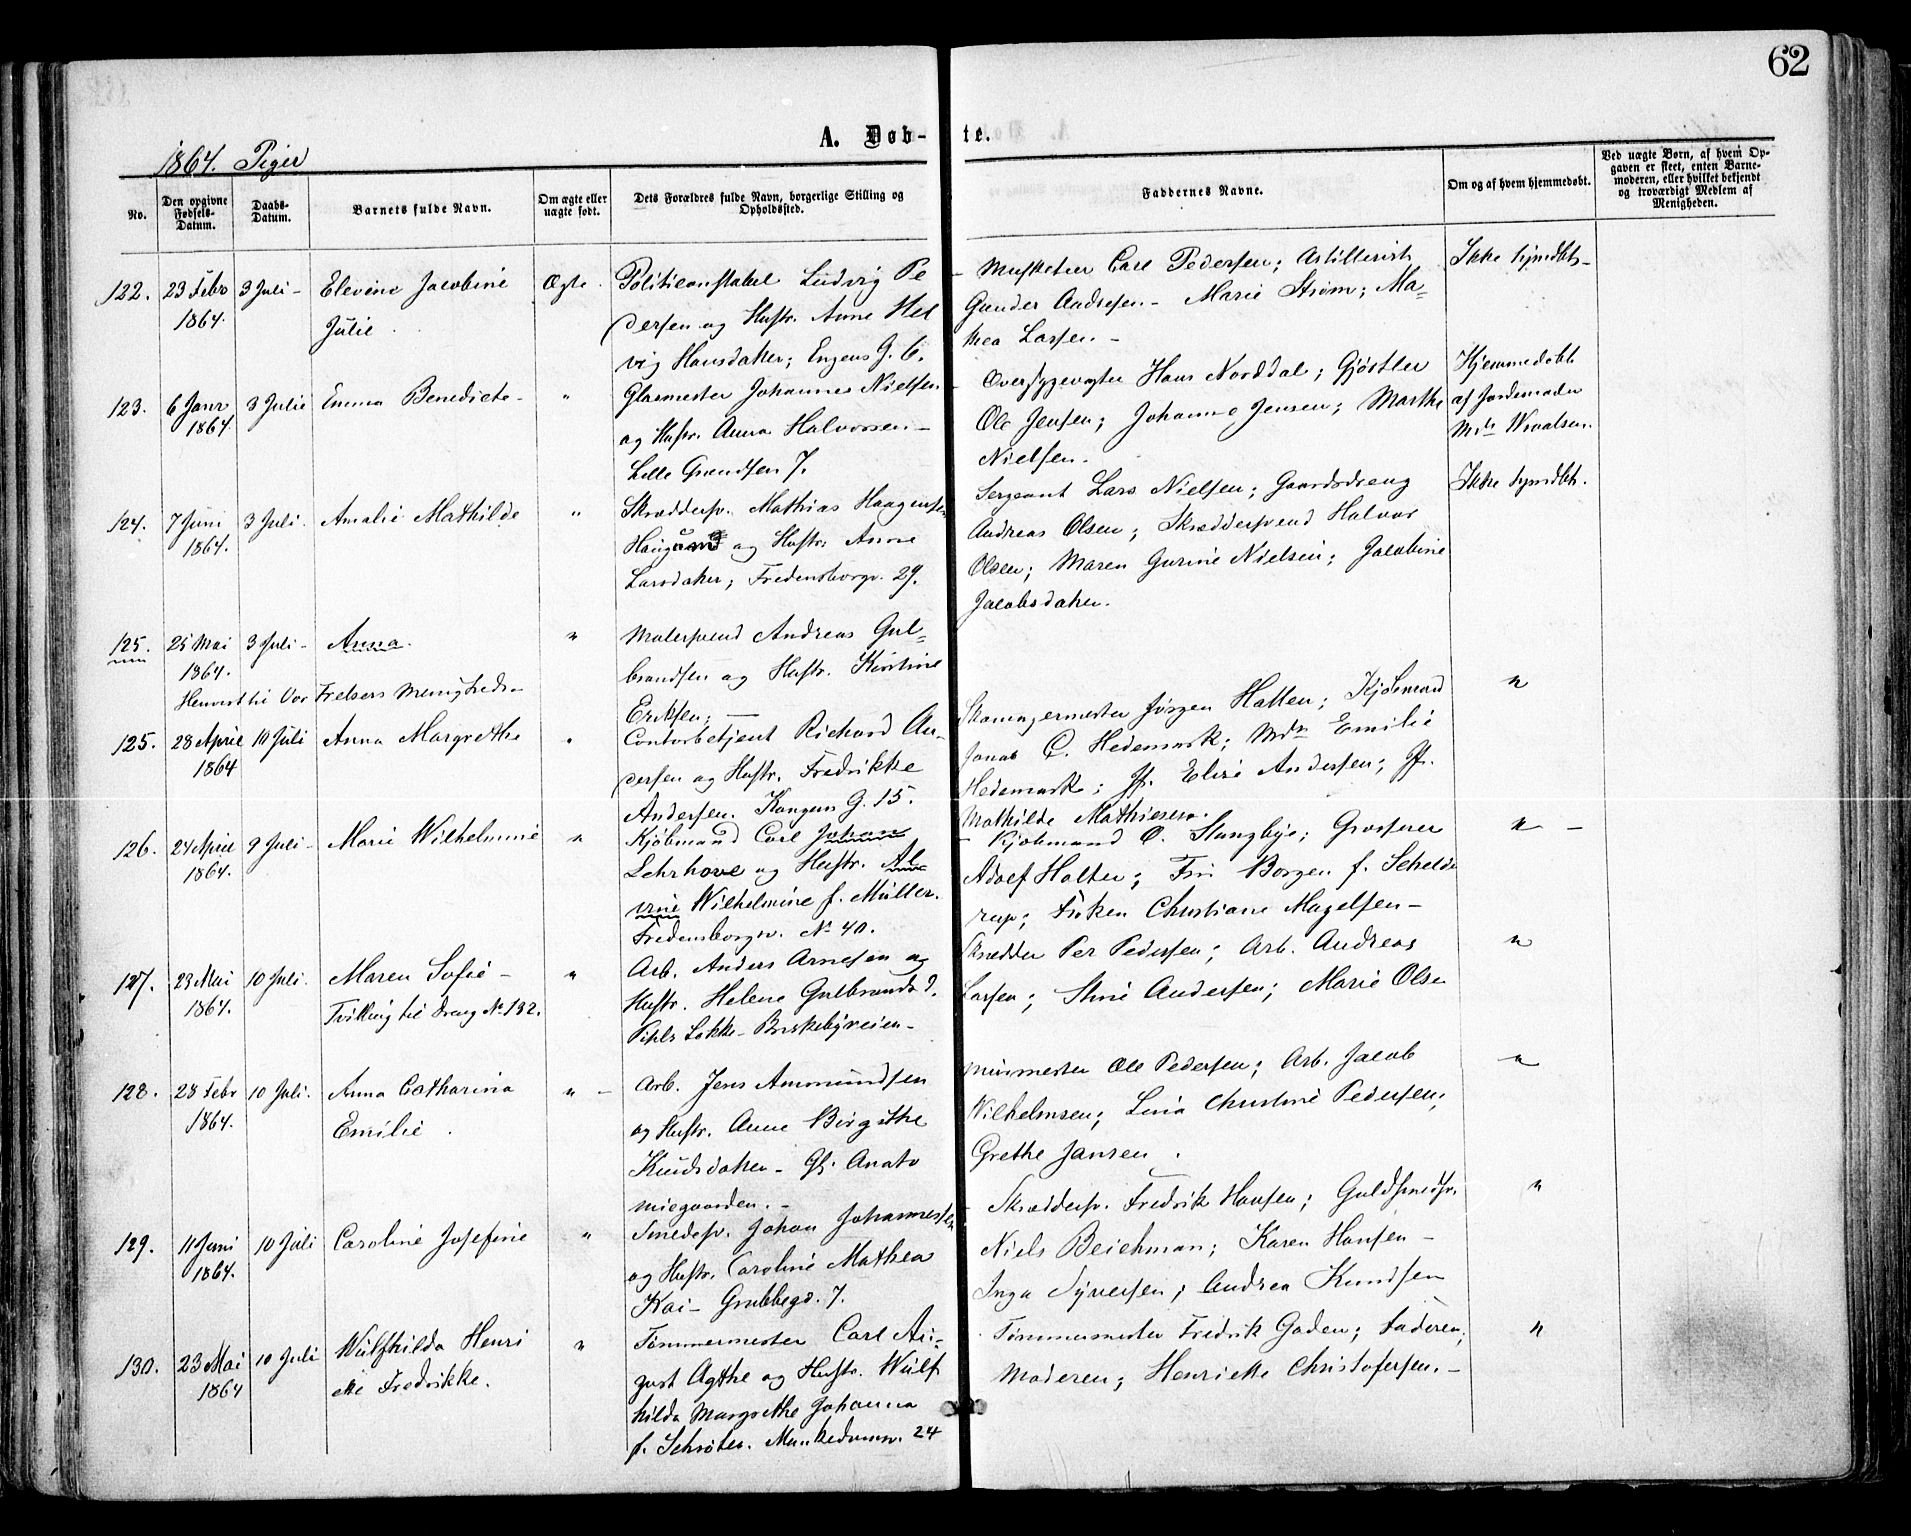 62
A. Døb-te.
1864. Piger
No.
Den opgivne Fødsels-Datum.
Daabs-Datum.
Barnets fulde Navn.
Om ægte eller uægte født.
Dets Forældres fulde Navn, borgerlige Stilling og Opholdssted.
Faddernes Navne.
Om og af hvem hjemmedøbt.
Ved uægte Børn, af hvem Opgaven er skeet, enten Barnemoderen, eller hvilket bekjendt og troværdigt Medlem af Menigheden.
122. 23 Febr 1864. 3 Juli - Elevine Jacobine Julie. Ægte.
Politiconstabel Ludvig Pe
dersen og Hustr. Anne Hel
vig Hansdater; Engens G. 6.
Musketeer Carl Pedersen; Artillerist
Gunder Andresen - Marie Strøm; Ma=
thea Larsen. -
Ikke hjmdbt -
123. 6 Janr 1864. 3 Julie Emma Benedicte - "
Glasmester Johannes Nielsen
og Hustr. Anna Halvorsen. -
Lille Grændsen 7.
Hans Norddal; Gjørtler
Ole Jensen; Johanne Jensen; Marthe
Nielsen.
Hjemmedøbt
af Jordemoder
Md
124. 7 Juni 1864. 3 Juli. Amalie Mathilde "
Skræddersv. Mathias Haagensen
og Hustr. Anne
Larsdater; Fredensborgv. 29.
Sergeant Lars Nielsen; Gaardsdreng
Andreas Olsen; Skræddersvend Halvor
Olsen; Maren Gurine Nielsen; Jacobine
Jacobsdater.
Ikke hjmdbt.
125. 25 Mai 1864. 3 Juli - Anna. "
Henvist til Vor Frelsers Menighed -
Malersvend Andreas Gul=
brandsen og Hustr. Kirstine
Eriksen; -
125. 28 April 1864 10 Juli Anna Margrethe "
Contorbetjent Richard An-
dersen og Hustr. Fredrikke
Andersen. Kongens G. 15.
Skomagermester Jørgen Hatten; Kjøbmand
Jonas C. Hedemark; Mdm Emilie
Hedemark; Jfr. Elise Andersen; Jfr.
Mathilde Mathiesen.
"
126. 24 April 1864. 9 Juli - Marie Wilhelmine "
Kjøbmand Carl Johan
Lehrhove og Hustr. Al
vine Wilhelmine f. Müller.
Fredensborgv. No 40.
- Kjøbmand C. Stangbye; Grosserer
Adolf Holter; Fru Borgen f. Schelde
rup; Frøken Christiane Magelsen -
" -
127. 23 Mai 1864. 10 Juli. Maren Sofie - "
Tvilling til Dreng No 132.
Arb. Anders Arnesen og
Hustr. Helene Gulbrandsd.
Pihls Løkke - Briskebyveien -
Skrædder Per Pedersen; Arb. Andreas
Larsen; Stine Andersen; Marie Olsen
"
128. 28 Febr 1864. 10 Juli. Anna Catharina Emilie. " -
Arb. Jens Ammundsen
og Hustr. Anne Birgithe
Knudsdater - Gl. Anato
miegaarden. -
Murmester Ole Pedersen; Arb. Jacob
Wilhelmsen; Lina Christine Pedersen;
Grethe Jansen.
"
129. 11 Juni 1864. 10 Juli Caroline Josefine "
Smedesv. Johan Johannesen
og Hustr. Caroline Mathea
Kai - Grubbegd. 7.
- Skræddersv. Fredrik Hansen; Guldsmedsv.
Niels Beichman; Karen Hansen -
Inga Syversen; Andrea Knudsen
"
130. 23 Mai 1864 10 Juli Wulfhilda Henri
ette Fredrikke. "
Tømmermester Carl Au-
gust Agthe og Hustr. Wulf
hilda Margrethe Johanna
f. Schrøter. Munkedamsv. 24
Tømmermester Fredrik Gaden; Faderen;
Moderen; Henriette Christofersen. -
"